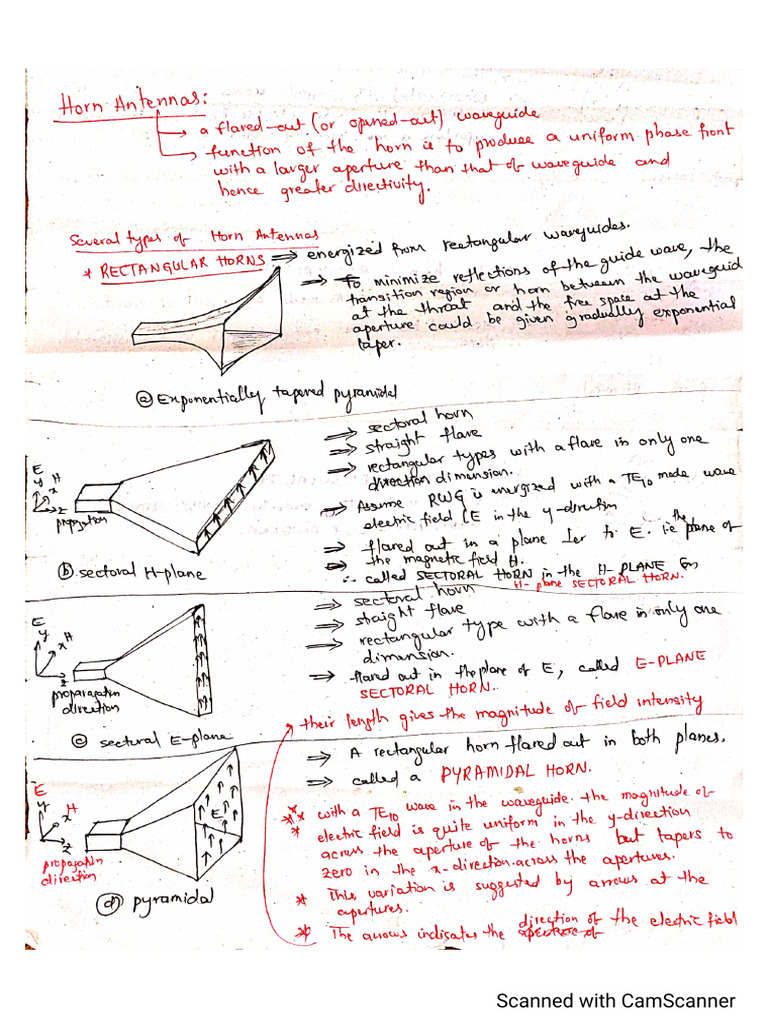 Horn Antennas:
↳ a flared-out (or opened-out) waveguide
↳ function of the horn is to produce a uniform phase front
with a larger aperture than that of waveguide and
hence greater directivity.
Several types of Horn Antennas
* RECTANGULAR HORNS ⇒ energized from rectangular waveguides.
⇒ To minimize reflections of the guide wave, the
transition region or horn between the waveguid
at the throat and the free space at the
aperture could be given gradually exponential
taper.
(a) Exponentially tapered pyramidal
⇒ sectoral horn
⇒ straight flare
⇒ rectangular types with a flare in only one
direction dimension.
⇒ Assume RWG is energized with a TE10 mode wave
electric field E in the y-direction
⇒ flared out in a plane ⊥er to E. i.e the plane of
⇒ the magnetic field H.
∴ called SECTORAL HORN in the H-PLANE
H-plane SECTORAL HORN.
E
y H
x
z
propagation
(b) sectoral H-plane
⇒ sectoral horn
⇒ straight flare
⇒ rectangular type with a flare in only one
dimension.
⇒ flared out in the plane of E, called E-PLANE
SECTORAL HORN.
E
y H
x
z
propagation
direction
(c) sectoral E-plane
their length gives the magnitude of field intensity
⇒ A rectangular horn flared out in both planes.
⇒ called a PYRAMIDAL HORN.
E
y H
x
z
propagation
direction
E
(d) pyramidal
* * with a TE10 wave in the waveguide. the magnitude of
* electric field is quite uniform in the y-direction
across the aperture of the horns but tapers to
zero in the x-direction across the apertures.
* This variation is suggested by arrows at the
apertures.
* The arrows indicates the direction of the electric field
Scanned with CamScanner